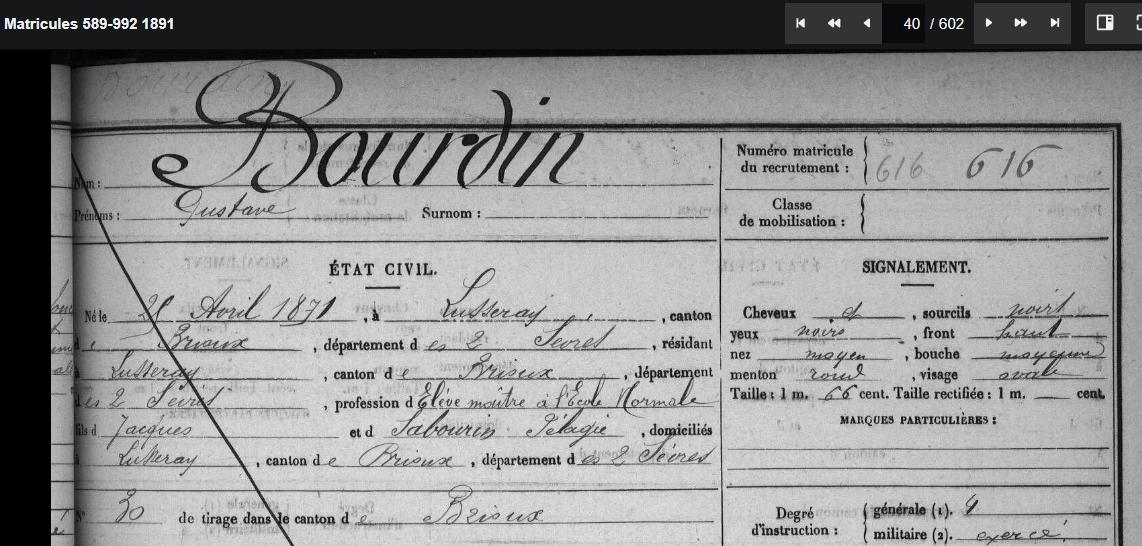 Matricules 589-992 1891
40 / 602
Bourdin
Nom :
Prénoms : Gustave Surnom :
Numéro matricule du recrutement : 616 616
Classe de mobilisation :
ÉTAT CIVIL.
Né le Avril 1871, à Lusseray, canton
de Brioux, département des 2 Sèvres, résidant
à Lusseray, canton d Brioux, département
des 2 Sèvres, profession d Elève maître à l'Ecole Normale
fils d Jacques et d Sabourin Pélagie, domiciliés
à Lusseray, canton de Brioux, département des 2 Sèvres
N° 30 de tirage dans le canton de Brioux
SIGNALEMENT.
Cheveux et, sourcils noirs
yeux noirs, front haut
nez moyen, bouche moyenne
menton rond, visage ovale
Taille : 1 m. 66 cent. Taille rectifiée : 1 m. cent.
MARQUES PARTICULIÈRES :
Degré d'instruction : générale (1). militaire (2). exercé